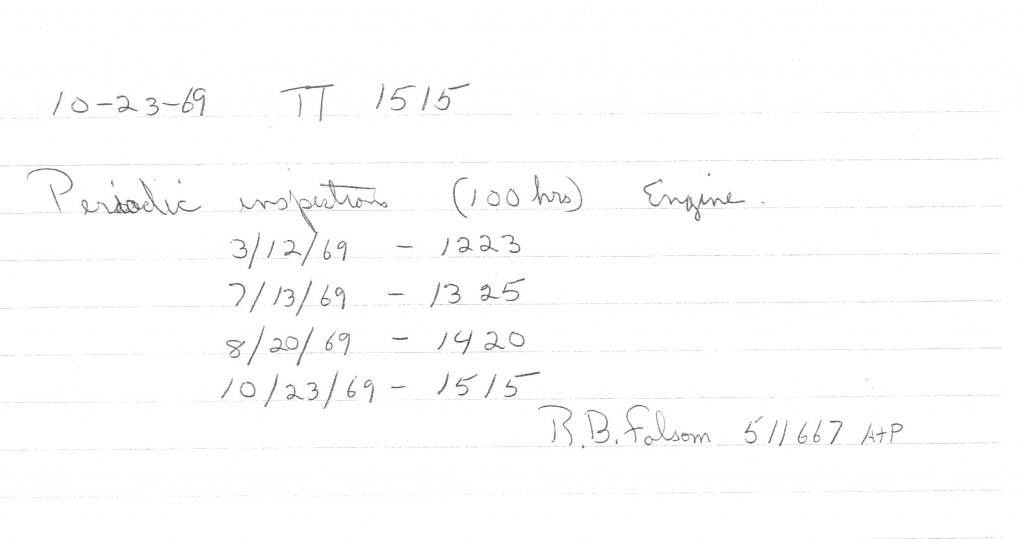 10-23-69 TT 1515
Periodic inspections (100 hrs) Engine.
3/12/69 - 1223
7/13/69 - 1325
8/20/69 - 1420
10/23/69 - 1515
R.B. Folsom 511667 A+P